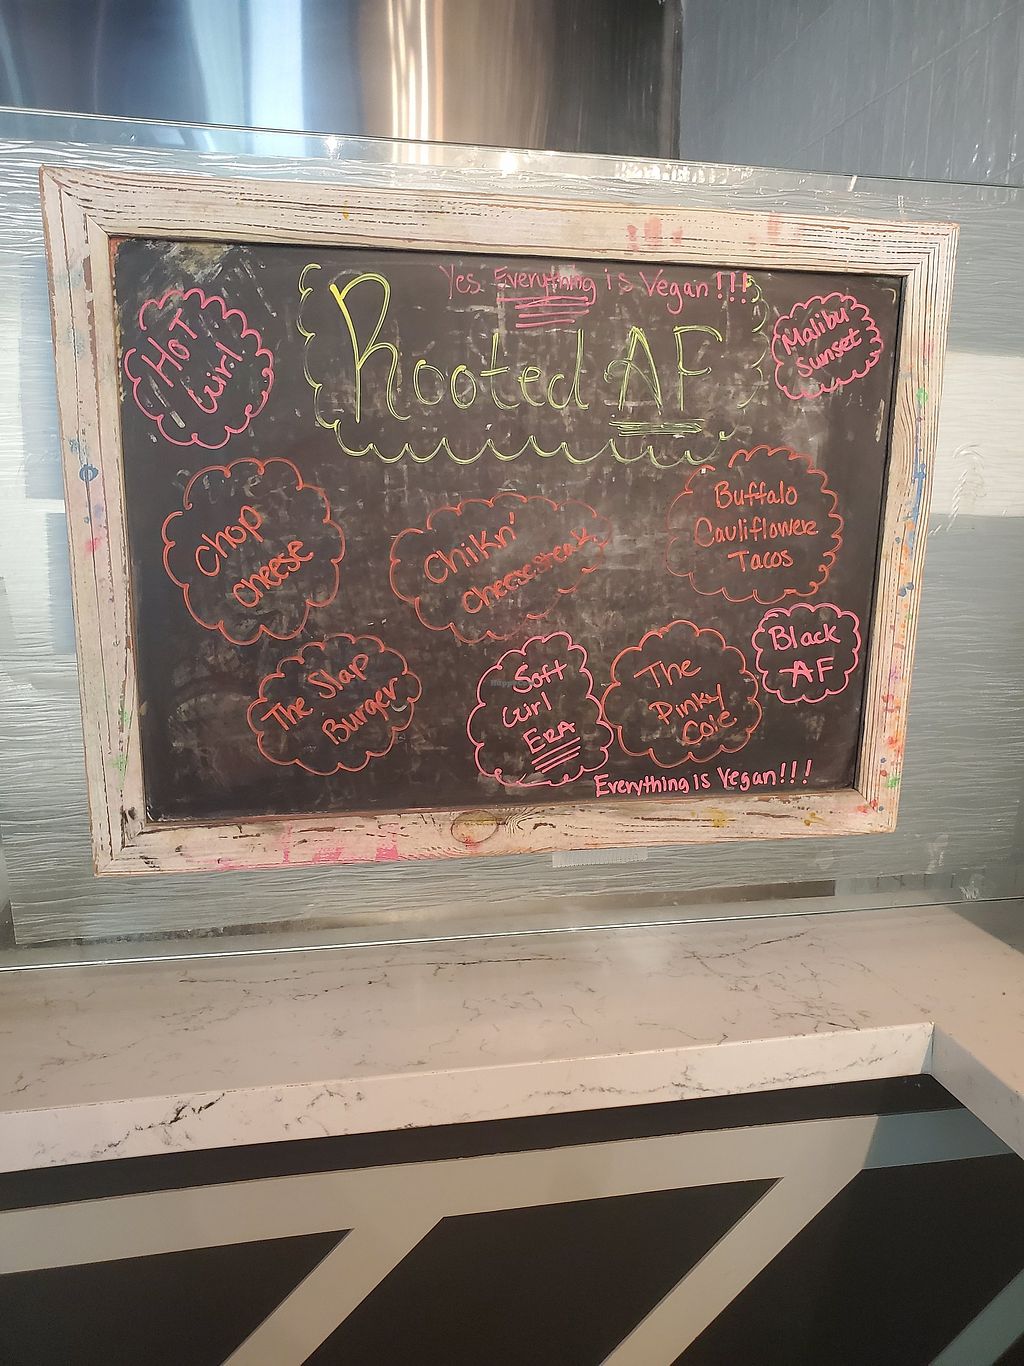 Yes Everything is Vegan!!!
Rooted AF
HOT
Girl
Malibu
Sunset
Chop
Cheese
Chikn'
Cheesesteak
Buffalo
Cauliflower
Tacos
The Slap
Burger
Soft
Girl
ERA
The
Pinky
Cole
Black
AF
Everything is Vegan!!!